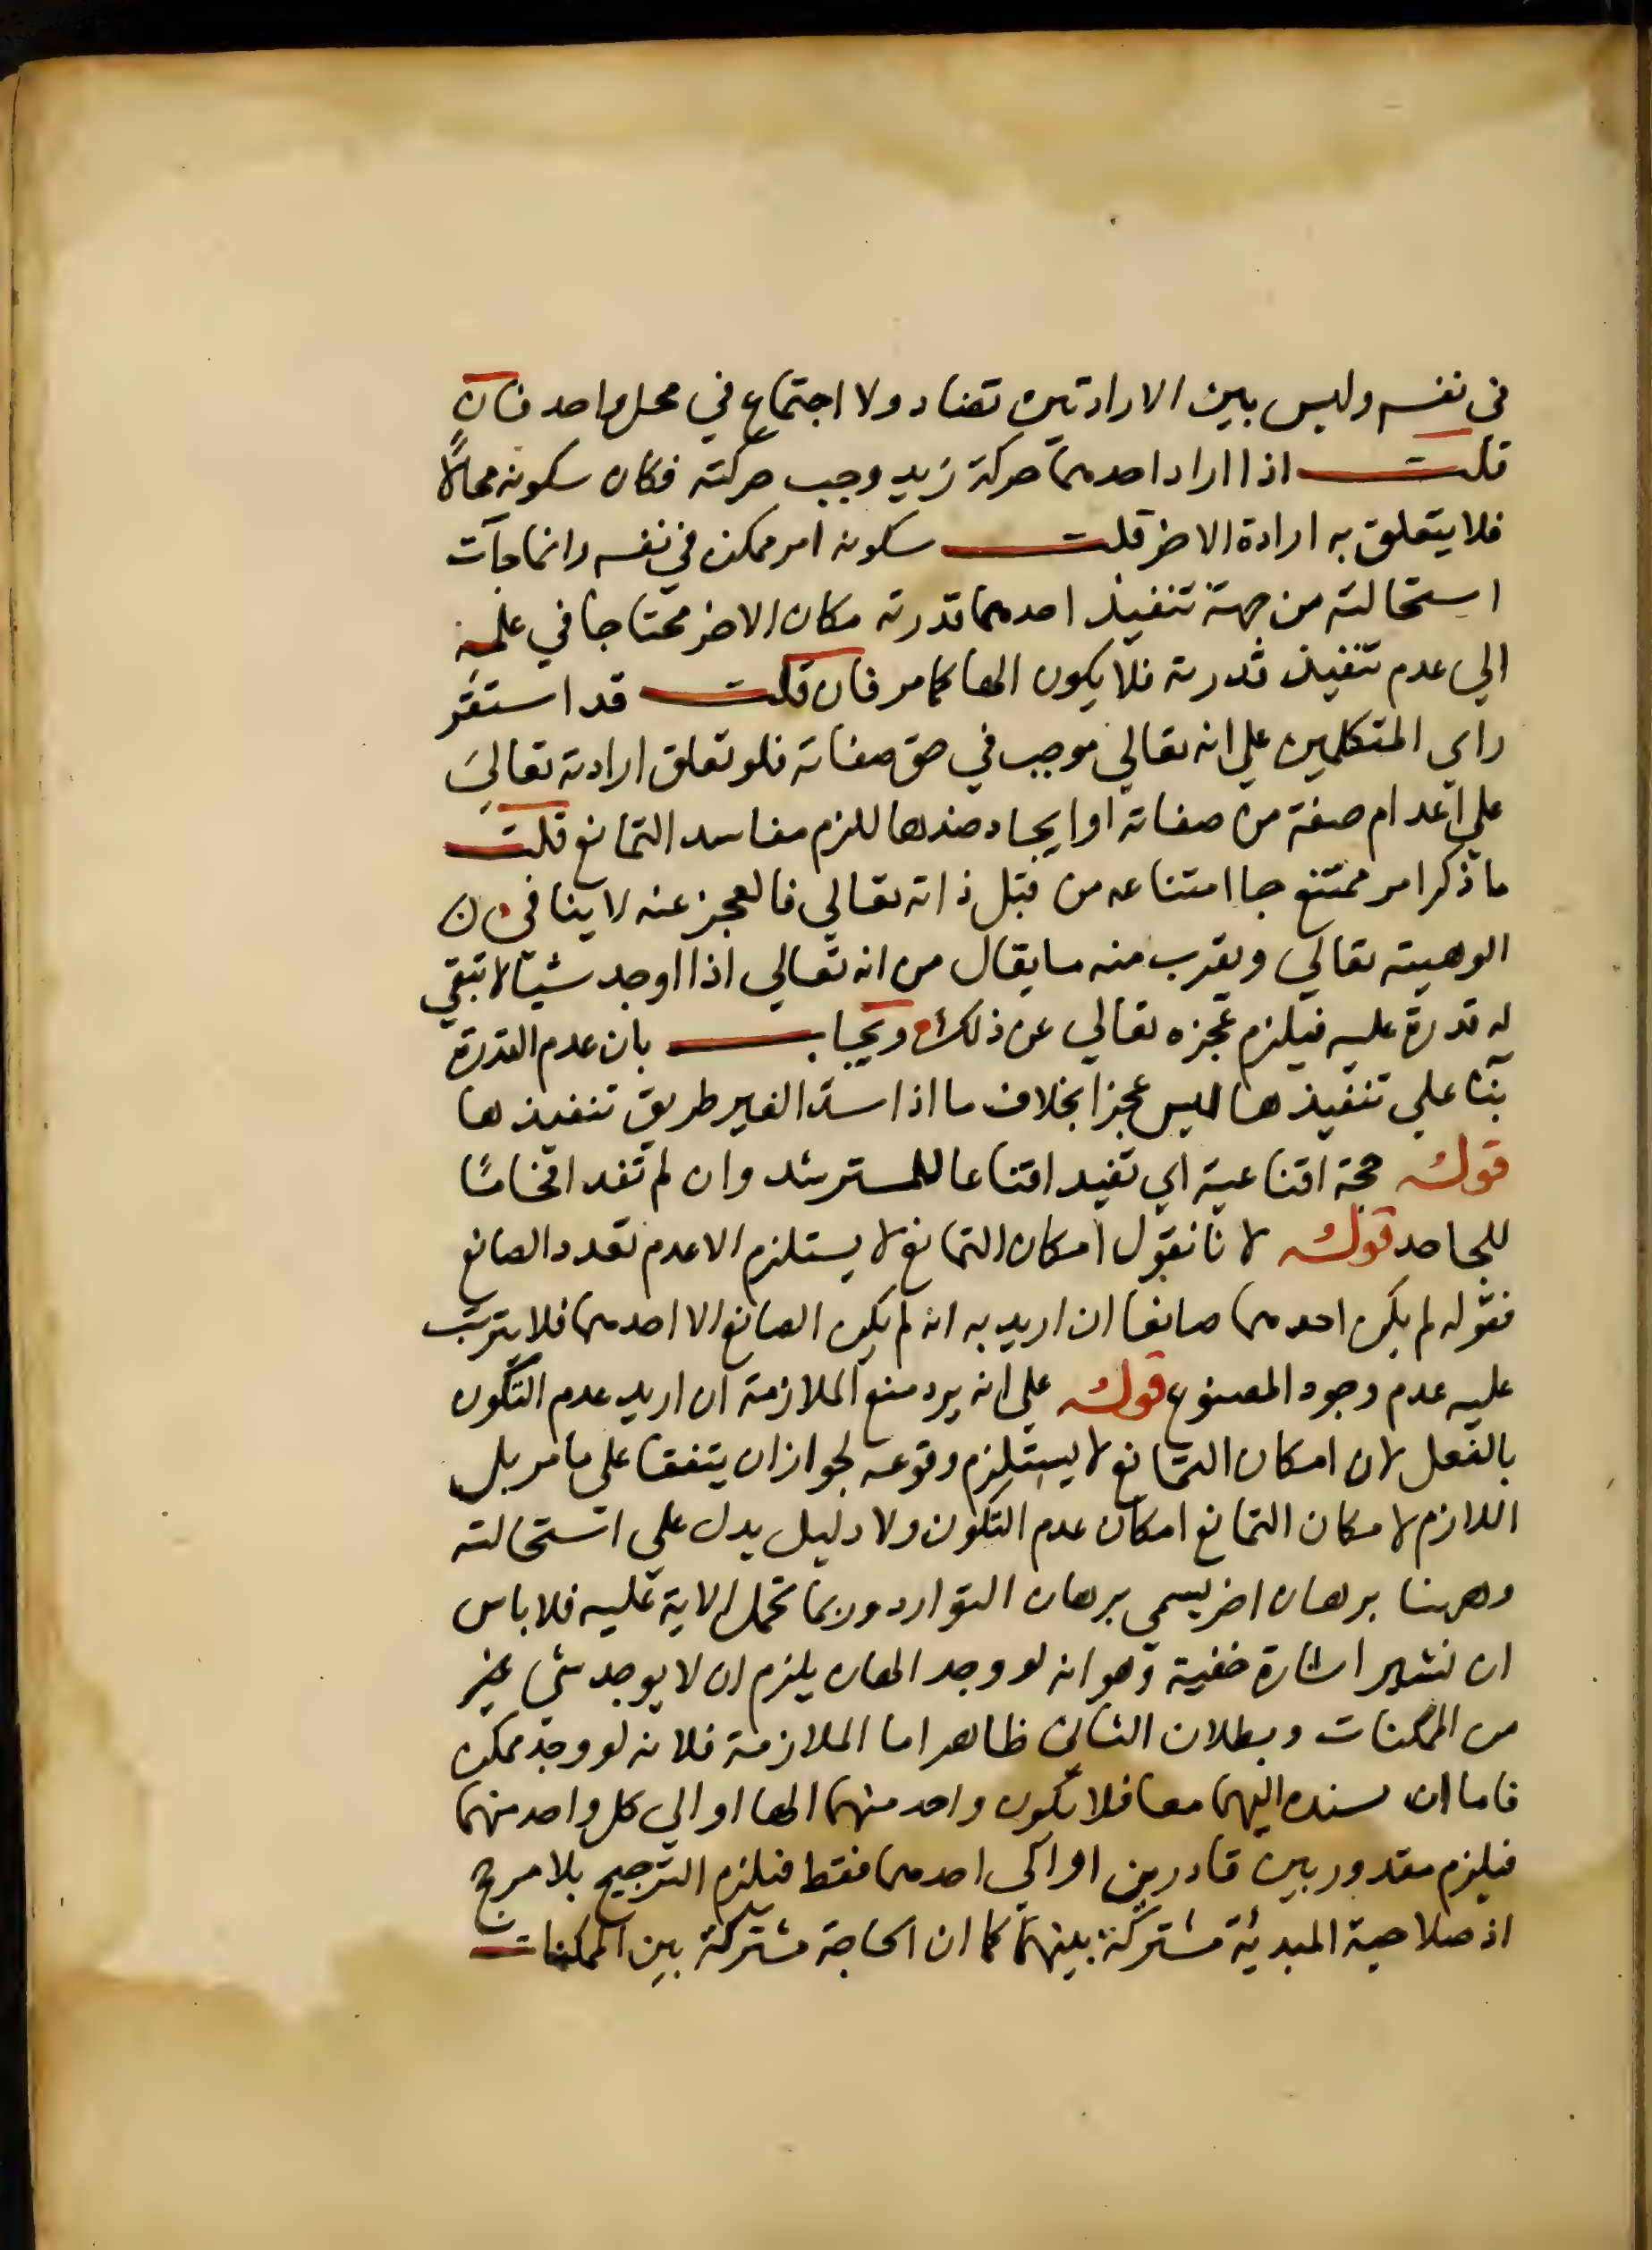 في نفسه وليس بين الارادتين تضاد ولا اجتماع في محل واحد فان
قلت اذا اراد احدهما حركة زيد وجب حركته فكان سكونه محالًا
فلا يتعلق به ارادة الاخر قلت سكونه امر ممكن في نفسه وانما جآت
استحالته من جهة تنفيذ احدهما قدرته فكان الاخر محتاجا في علمه
الي عدم تنفيذ قدرته فلا يكون الها كما مر فان قلت قد استقر
راي المتكلمين علي انه تعالي موجب في حق صفاته فلو تعلق ارادته تعالي
علي اعدام صفة من صفاته او ايجاد ضدها للزم مفاسد التمانع قلت
ما ذكر امر ممتنع جا امتناعه من قبل ذاته تعالي فالعجز عنه لا ينافي
الوهيته تعالي ويقرب منه ما يقال من انه تعالي اذا اوجد شيئا لا تبقي
له قدرة عليه فيلزم عجزه تعالي عن ذلك ويجاب بان عدم القدرة
بنآ علي تنفيذها ليس عجزا بخلاف ما اذا سد الغير طريق تنفيذها
قوله حجة اقناعية اي تفيد اقناعا للمسترشد وان لم تفد افحامًا
للجاحد قوله لانا نقول امكان التمانع لا يستلزم الا عدم تعدد الصانع
فقوله لم يكن احدهما صانعا ان اريد به انه لم يكن الصانع الا احدهما فلا يترتب
عليه عدم وجود المصنوع قوله علي انه يرد منع الملازمة ان اريد عدم التكون
بالفعل لان امكان التمانع لا يستلزم وقوعه لجواز ان يتفقا علي ما مر بل
اللازم لامكان التمانع امكان عدم التكون ولا دليل يدل علي استحالته
وههنا برهان اخر يسمي برهان التوارد وربما تحمل الاية عليه فلا باس
ان نشير اشارة خفية وهو انه لو وجد الهان يلزم ان لا يوجد شي غير
من الممكنات وبطلان التالي ظاهر اما الملازمة فلانه لو وجد ممكن
فاما ان يسند اليهما معا فلا يكون واحد منهما الها او الي كل واحد منهما
فيلزم مقدور بين قادرين او الي احدهما فقط فيلزم الترجيح بلا مرجح
اذ صلاحية المبدئية مشتركة بينهما كما ان الحاجة مشتركة بين الممكنات